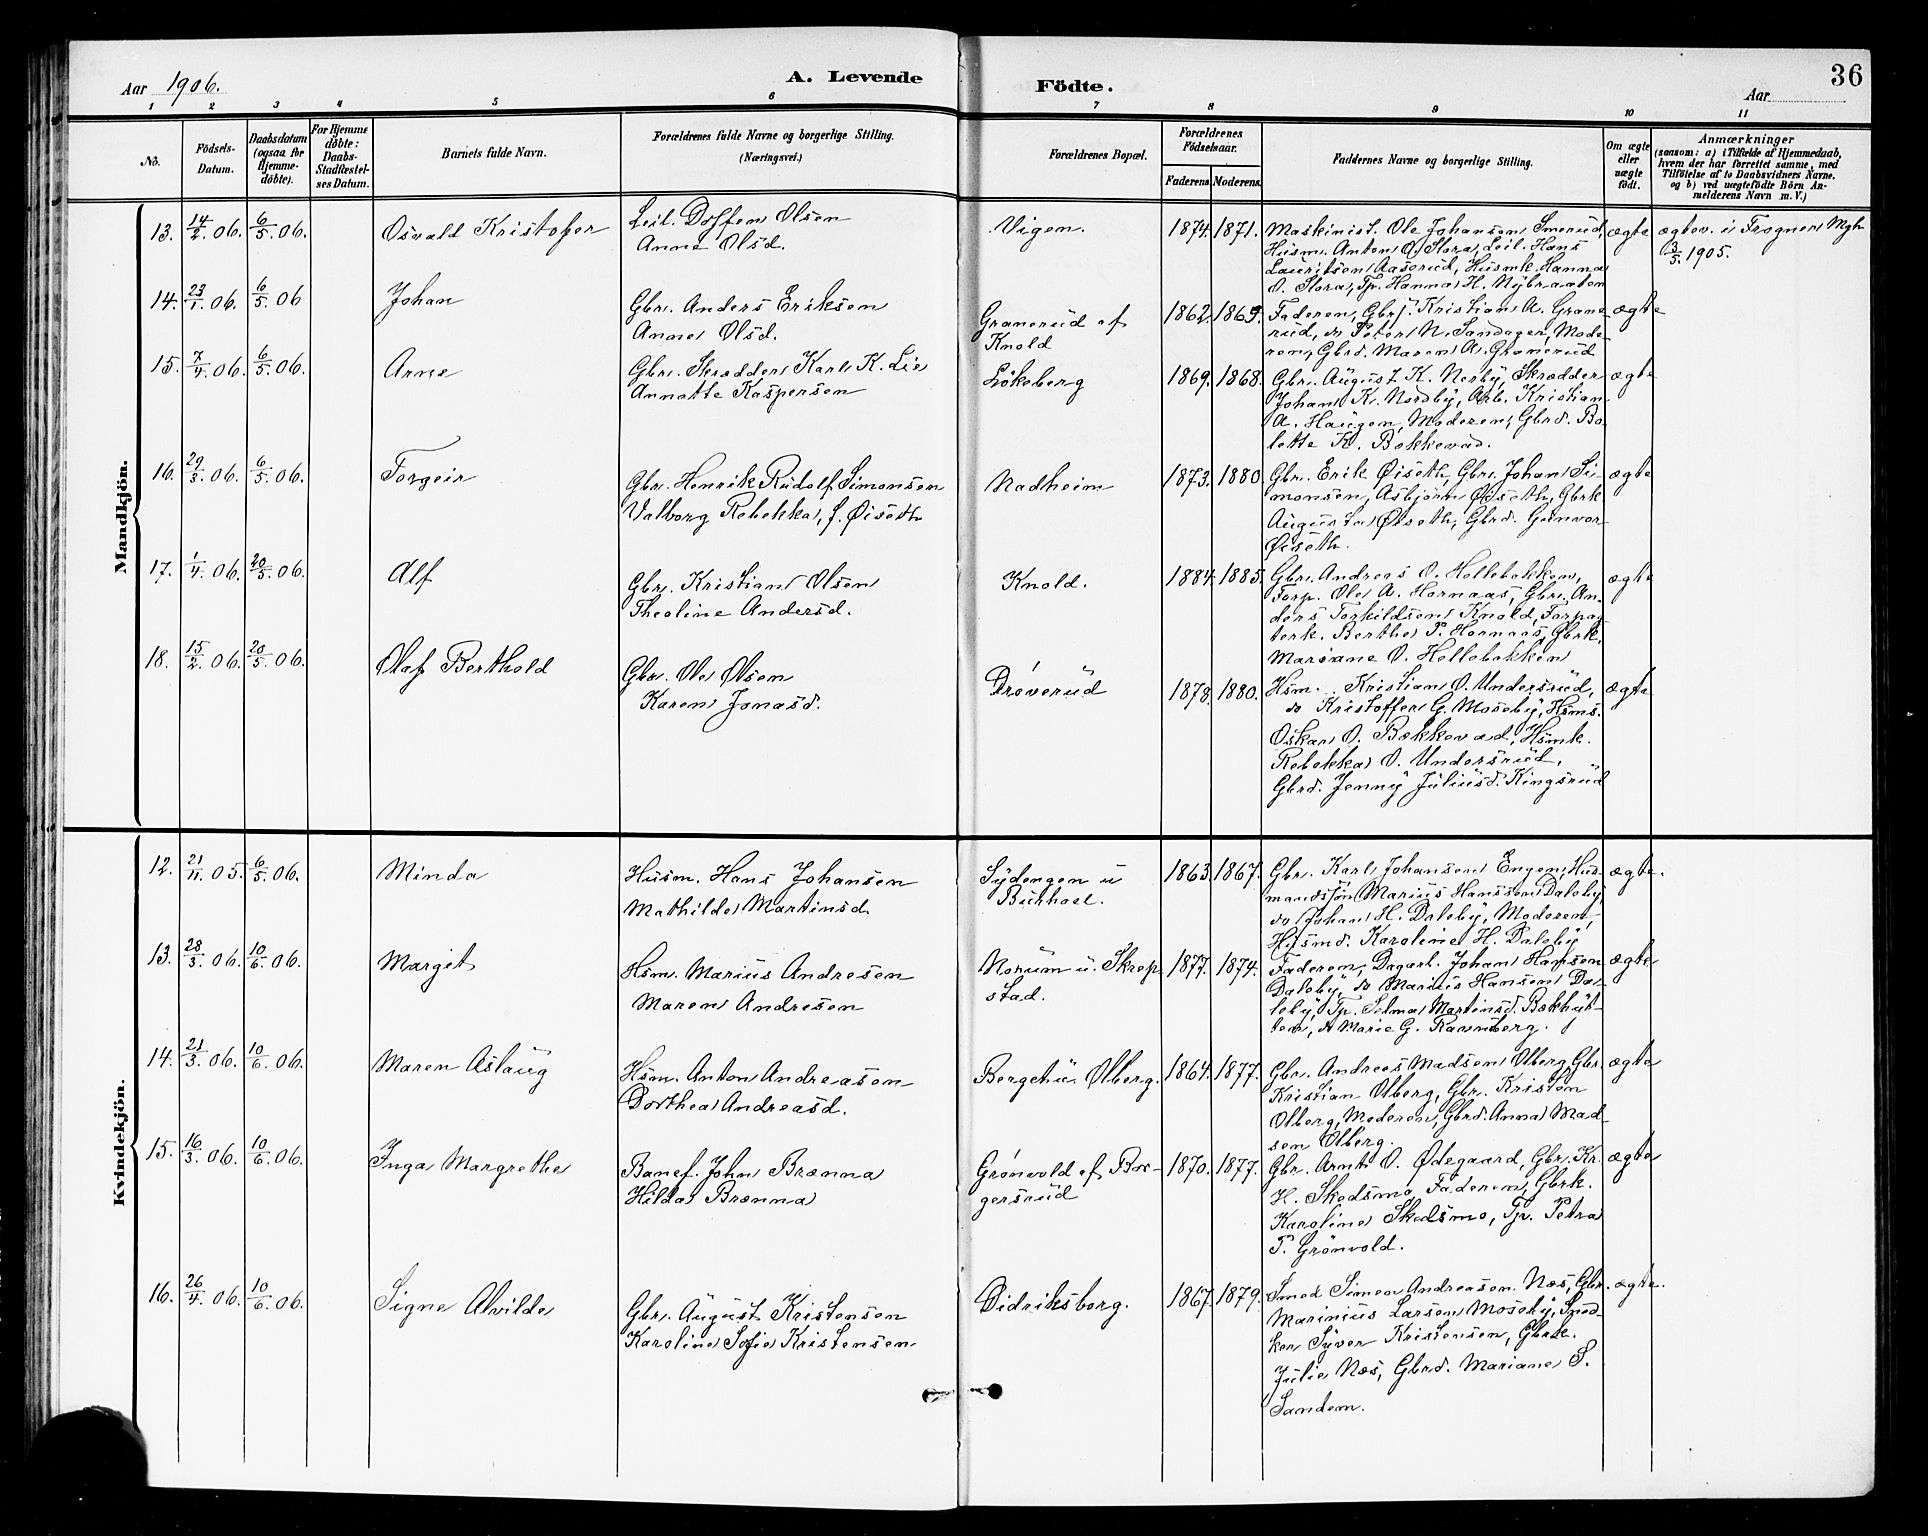 Aar 1906.
A. Levende
Födte.
Aar
36
1 2 3 4 5 6 7 8 9 10 11
No.
Födsels-Datum.
Daabsdatum (ogsaa for Hjemmedöbte).
For Hjemmedöbte: Daabs-Stadfæstelses Datum.
Barnets fulde Navn.
Forældrenes fulde Navne og borgerlige Stilling. (Næringsvei.)
Forældrenes Bopæl.
Forældrenes Födselsaar.
Faderens. Moderens.
Faddernes Navne og borgerlige Stilling.
Om ægte eller uægte födt.
Anmærkninger (saasom: a) i Tilfælde af Hjemmedaab, hvem der har forrettet samme, med Tilföielse af to Daabsvidners Navne. og b) ved uægtefödte Börn Anmelderens Navn m. V.)
Mandkjön.
13. 14/2 06. 6/5 06. Osvald Kristofer
Leil. Doften Olsen
Anne Olsd.
Vigen. 1874. 1871.
Maskinist. Ole Johansen Smerud,
Husm. Anton O. Stora, Leil. Hans
Lauritsen Aaserud, Husmk. Hanna
O. Stora, Tp. Hanna H. Nybraaten
ægte
ægtev. i Frogner Mgh
3/5 1905.
14. 23/1 06. 6/5 06 Johan
Gbr. Anders Eriksen
Anne Olsd.
Granerud af
Knold
1862. 1869.
Faderen, Gbrs. Kristian A. Grane-
rud, do Peter N. Sandager, Mode-
ren, Gbrd. Maren A. Granerud
ægte
15. 7/4 06. 6/5 06. Arne
Gbr. Skrædder Karl K. Lie
Annette Kaspersen
Lökeberg 1869. 1868.
Gbr. August K. Nesby, Skrædder
Johan K. Nordby, Arb. Kristian
A. Haugen, Moderen, Gbrd. Bo-
lette K. Bekkevad.
ægte
16. 29/3 06. 6/5 06. Torgeir
Gbr. Henrik Rudolf Simonsen
Valborg Rebekka, f. Øiseth
Nadheim 1873. 1880.
Gbr. Erik Øiseth, Gbr. Johan Si-
monsen, Asbjørn Øiseth, Gbrk
Augusta Øiseth, Gbrd. Gunvor
Øiseth.
ægte
17. 1/4. 06. 20/5 06. Alf
Gbr. Kristian Olsen
Theoline Andersd.
Knold. 1884. 1885.
Gbr. Andreas O. Hellebekken,
Torp. Ole A. Hornaas, Gbr. An-
ders Torkildsen Knold, Torpar-
terk. Berthe P. Hornaas, Gbrk.
Mariane O. Hellebekken
ægte
18. 15/2 06. 20/5 06. Olaf Berthold
Gbr. Ole Olsen
Karen Jonasd.
Prøverud 1878. 1880.
Hsm. Kristian O. Undersrud,
do Kristoffer G. Moseby, Hsms.
Oskar O. Bækkevad, Hsmk.
Rebekka O. Undersrud,
Gbrd. Jenny Juliusd. Kingsrud
ægte
Kvindekjön.
12. 21/11. 05. 6/5 06. Minda
Husm. Hans Johansen
Mathilde Martinsd.
Sydengen u
Burhoel.
1863. 1867.
Gbr. Karl Johansen Engen, Hus-
mandssøn Marius Hanssen Daleby,
do Johan H. Daleby, Moderen,
Husmd. Karoline H. Daleby
ægte.
13. 28/3. 06. 10/6. 06. Margit
Hsm. Marius Andresen
Maren Andresen
Norum u. Skrep-
stad.
1877. 1874.
Faderen, Dagarb. Johan Hansen
Daleby, do Marius Hansen Da-
leby, Tp. Selma Martinsd. Bækhyt-
ten, do Marie G. Ravnsberg.
ægte
14. 21/3 06. 10/6 06. Maren Aslaug
Hsm. Anton Andreasen
Dorthea Andreasd.
Berget u. Olberg. 1864. 1877.
Gbr. Andreas Madsen Olberg, Gbr.
Kristian Olberg, Gbr. Kristen
Olberg, Moderen, Gbrd. Anna Mad-
sen Olberg.
ægte
15. 16/3 06. 10/6 06. Inga Margrethe
Banef. John Brænna
Hilda Brænna
Grønvold af Bor-
gersrud
1870. 1877.
Gbr. Arnt O. Ødegaard, Gbr. Kr.
H. Skedsmo, Faderen, Gbrk.
Karoline Skedsmo, Tp. Petra
P. Grönvold.
ægte
16. 26/4. 06. 10/6. 06. Signe Alvilde
Gbr. August Kristensen
Karoline Sofie Kristensen.
Didriksborg. 1867. 1879.
Smed Simen Andreasen Næs, Gbr.
Marinius Larsen Moseby, Sned-
ker Syver Kristensen, Gbrk.
Julie Næs, Gbrd. Mariane S.
Sandem.
ægte.